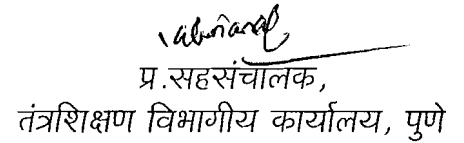 प्र.सहसंचालक,
तंत्रशिक्षण विभागीय कार्यालय, पुणे